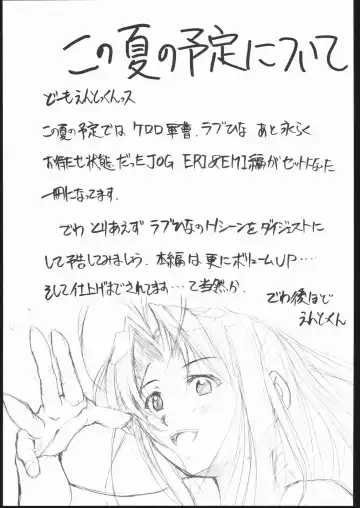 この夏の予定について
どーもえんとっくんっス
この夏の予定では ケロロ軍曹、ラブひな あと永らく
お待たせ状態だったJOG ERI&EMI編がセットになった
一冊になってます。
でわ とりあえず ラブひなのHシーンをダイジェストに
して予告してみましょう。本編は更にボリュームUP…
そして仕上げまでされてます…て当然か。
でわ後ほど
えんとっくん